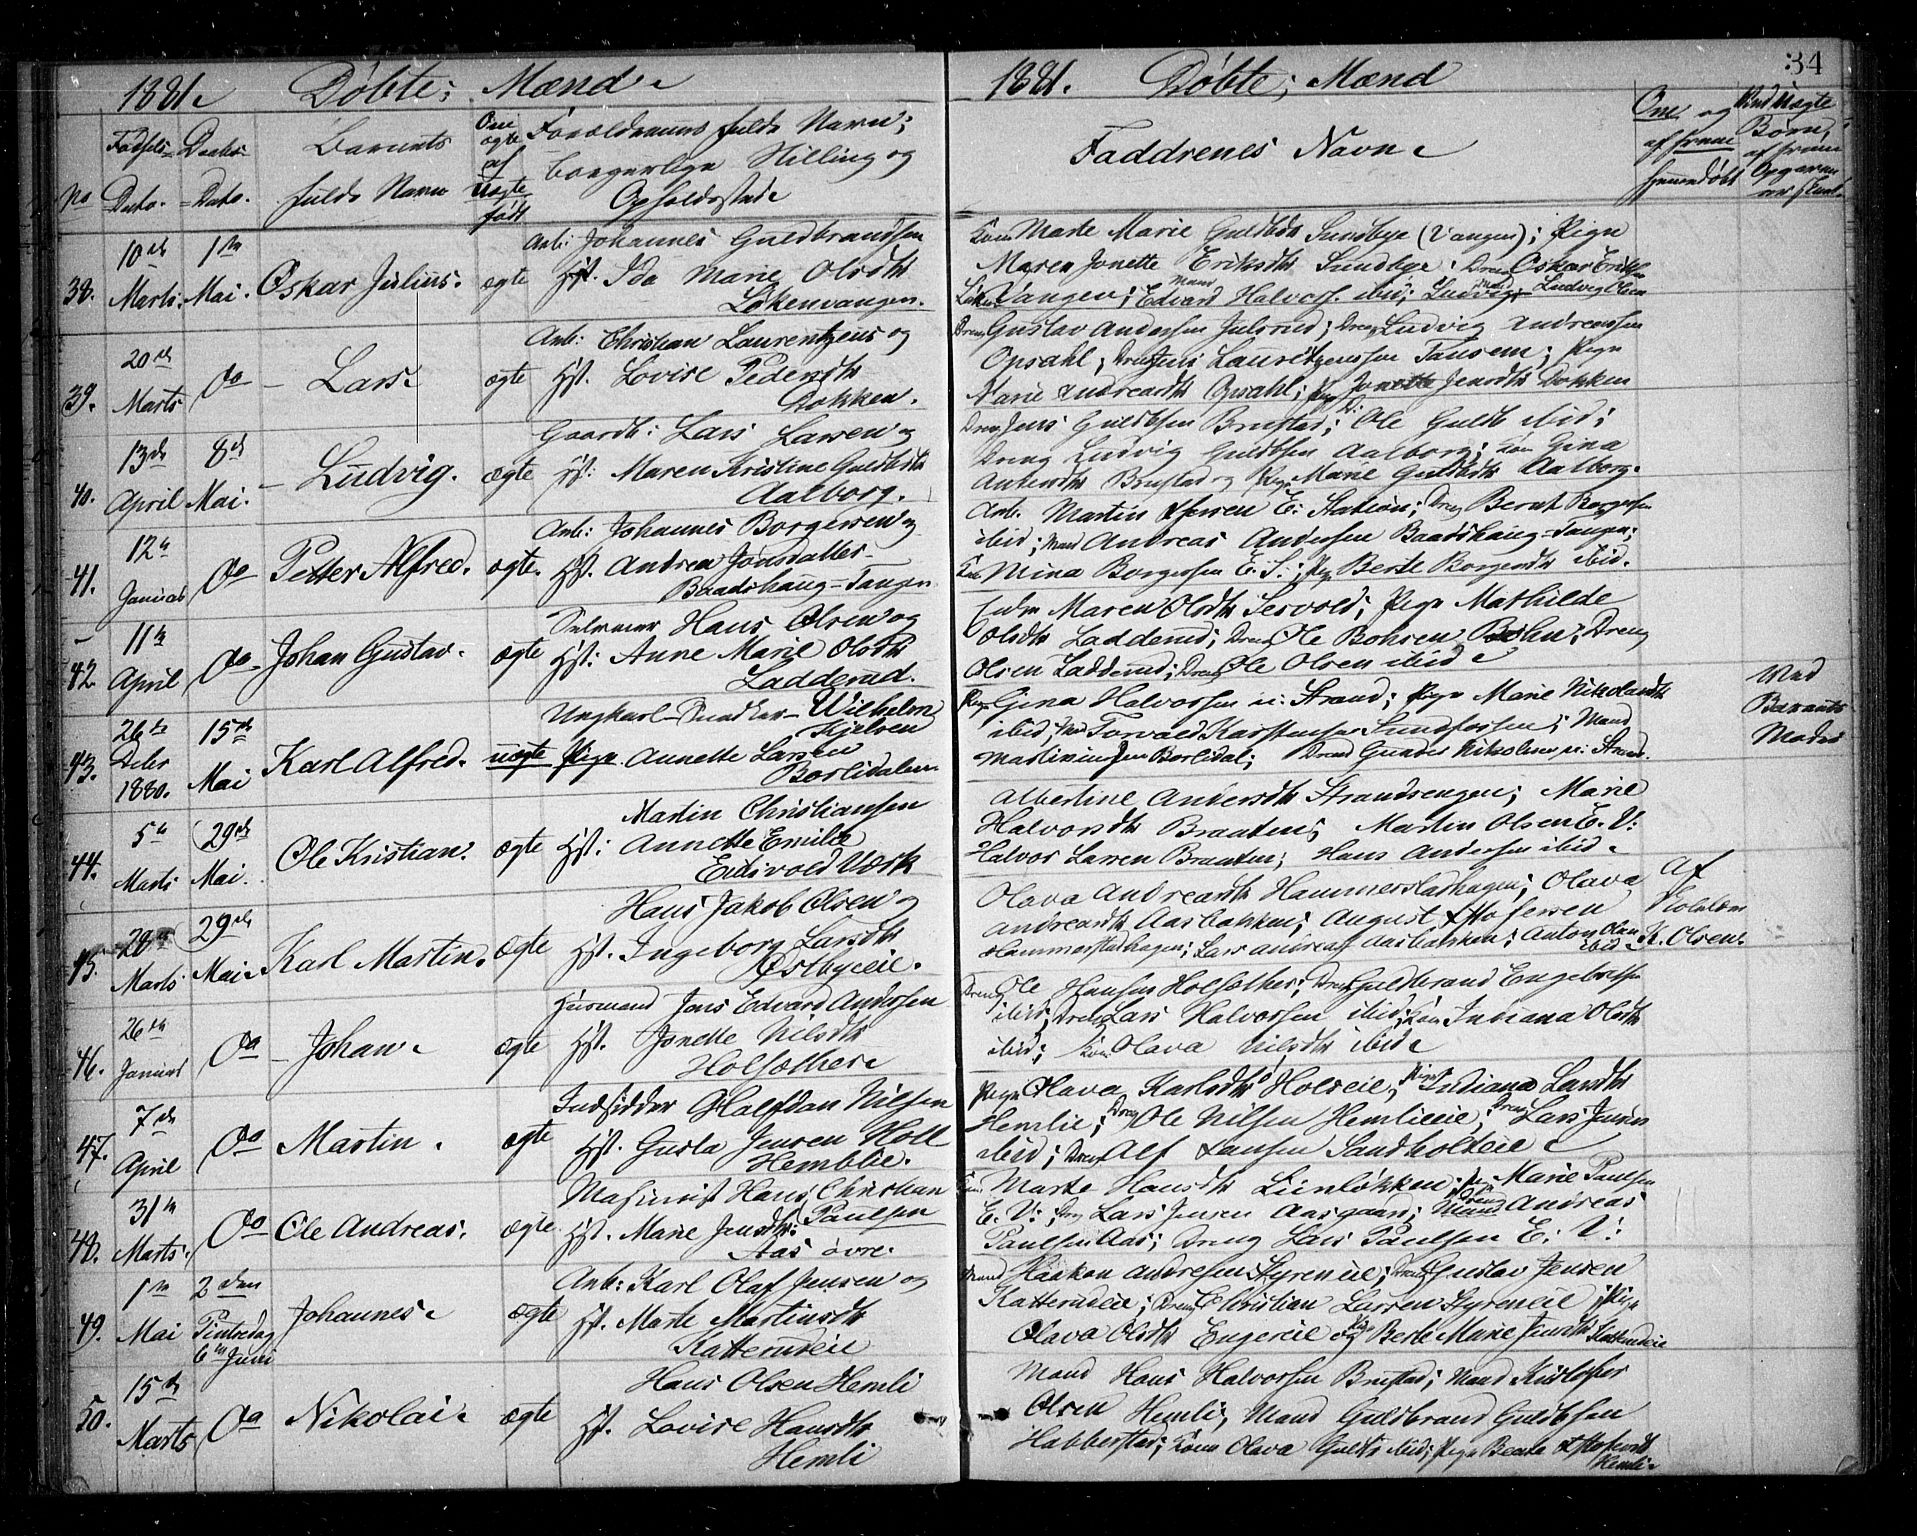 1881. Døbte; Mænd.
No
Fødsels-
Dato.
Daabs-
Dato.
Barnets
fulde Navn
Om
ægte
el
uægte
født
Forældrenes fulde Navn;
borgerlige Stilling og
Opholdssted.
38.
10de
Marts.
1ste
Mai.
Oskar Julius.
ægte
Arb: Johannes Guldbrandsen
Hst. Ida Marie Olsdtr
Løkenvangen.
39.
20de
Marts
Do
Lars.
ægte
Arb: Christian Laurentzens og
Hst. Lovise Pedersdtr
Dokken.
40.
13de
April
8de
Mai.
Ludvig.
ægte
Gaardb: Lars Larsen og
Hst: Maren Kristine Guldbdtr
Aalborg.
41.
12te
Januar
Do
Petter Alfred.
ægte.
Arb: Johannes Borgersen og
Hst. Andrea Jonsdatter
Baadshaug-Tangen
42.
11te
April
Do
Johan Gustav.
ægte
Selveier Hans Olsen og
Hst: Anne Marie Olsdtr
Ladderud.
43.
26te
Decbr
1880.
15de
Mai
Karl Alfred.
uægte
Ungkarl Snedker Wilhelm
Kjelsen
Pige Annette Larsen
Borlidalen
44.
5te
Marts
29de
Mai.
Ole Kristian.
ægte
Martin Christiansen
Hst: Annette Emilie
Eidsvold Værk
45.
28de
Marts
29de
Mai.
Karl Martin.
ægte
Hans Jakob Olsen og
Hst. Ingeborg Larsdtr
Østbyeie.
46.
26de
Januar
Do
Johan.
ægte
Husmand Jens Edvard Andersen
Hst. Jonette Nilsdtr
Holsæther.
47.
7de
April
Do
Martin.
ægte
Indsidder Halfdan Nilsen
Hst. Gusta Jensen Holl
Hemblie.
48.
31te
Marts.
Do
Ole Andreas.
ægte.
Maskinist Hans Christian
Paulsen
Hst. Marie Jensdtr.
Aas øvre.
49.
1ste
Mai
2den
Pintsedag
6te Juni
Johannes.
ægte
Arb: Karl Olaf Jensen og
Hst. Marte Martinsdtr
Katterudeie
50.
15de
Marts
Do
Nikolai.
ægte
Hans Olsen Hemli
Hst. Lovise Hansdtr
Hemli
1881. Døbte; Mænd
34
Faddrenes Navn.
Om og
af hvem
hjemmedøbt
Ved Uægte
Børn,
af hvem
Opgaven
er skeet.
Kone Marte Marie Guldbdtr Sundbye (Vangen); Pige
Maren Jonette Eriksdtr Sundbye; Dreng Oskar Eriksen
Vangen; Mand Edvard Halvors. ibid; Ludvig Olsen
Dreng Gustav Andersen Julsrud; Dreng Ludvig Andreassen
Opsahl; Dreng Juli Lauritzenssen Tansem; Pige
Marie Andreasdtr Opsahl; Pige Jonette Jensdtr Dokken
Dreng Jens Guldbsen Brustad; Ole Guldb ibid;
Dreng Ludvig Guldbsen Aalborg; Kone Gina
Andersdtr Brustad og Pige Marie Guldbdtr Aalborg.
Arb. Martin Iversen E. Station; Dreng Bernt Borgersen
ibid; Mand Andreas Andersen Baadshaug-Tangen;
Kone Mina Borgersen E. S.; Pige Berte Borgersdtr ibid.
Maren Olsdtr Servold; Pige Mathilde
Olsdtr Ladderud; Dreng Ole Bohren Bohn; Dreng
Olsen Ladderud; Dreng Ole Olsen ibid.
Pige Gina Halvorsen n. Strand; Pige Marie Nikolaidtr
ibid; Torvald Karstensen Sundfossen; Mand
Martinius Jens Borlidal; Dreng Gunder Nikolaisen n. Strand.
Ved
Barnets
Moder
Albertine Andersdtr Strandsengen; Marie
Halvorsdtr Branten; Martin Olsen E. V:
Halvor Larsen Branten; Hans Andersen ibid.
Olava Andreasdtr Hammerstadhagen; Olava
Andreasdtr Aasbakken; August Kristofersen
Hammerstadhagen; Lars Andreas Aasbakken; Anton Olsen
ibid.
Af
K. Olsen.
Dreng Ole Hansen Holsæther; Dreng Guldbrand Engebretsen
ibid; Dreng Lars Halvorsen ibid; Kone Indiana Olsdtr
ibid; Kone Olava Nilsdtr ibid.
Pige Olava Karlsdtr Holseie; Pige Indiana Larsdtr
Hemlie; Dreng Ole Nilsen Hemlieeie; Dreng Lars Jensen
ibid; Dreng Alf Hansen Sandholteie.
Kone Marte Hansdtr Lienløkken; Pige Marie Paulsen
E. V.; Dreng Lars Jensen Aasgaard; Dreng Andreas
Paulsen Aas; Dreng Lars Paulsen E. V:
Mand Haakon Andresen Styreneie; Dreng Gustav Jensen
Katterudeie; Dreng Christian Larsen Styreneie; Pige
Olava Olsdtr Engereie og Pige Berte Marie Jensdtr Katterudeie
Mand Hans Halvorsen Brustad; Mand Kristofer
Olsen Hemli; Mand Guldbrand Guldbsen
Habberstad; Kone Olava Guldbs ibid; Pige Beate Kristofersdtr
Hemli.